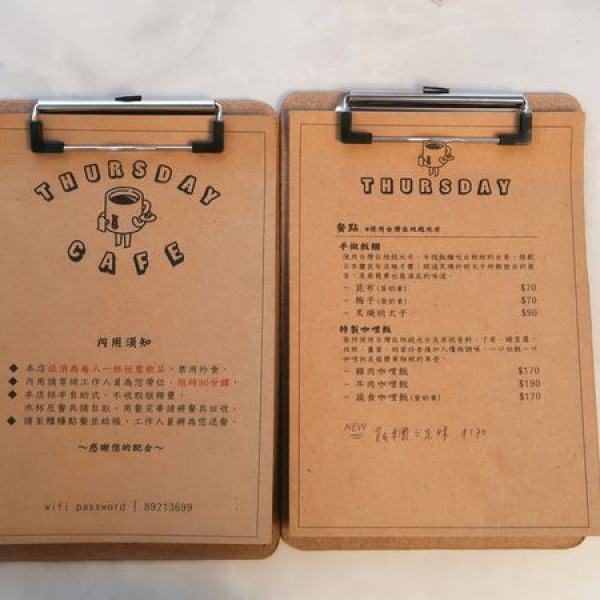 THURSDAY
CAFE
內用須知
◆ 本店低消為每人一杯任意飲品,禁用外食。
◆ 內用請等候工作人員為您帶位,限時90分鐘,
◆ 本店採半自助式,不收取服務費,
水杯及餐具請自取,用餐完畢請將餐具回收,
◆ 請至櫃檯點餐並結帳,工作人員將為您送餐。
～感謝您的配合～
wifi password | 89213699
THURSDAY
餐點 *使用台灣在地越光米
手做飯糰
- 昆布(蛋奶素) $70
- 梅子(蛋奶素) $70
- 炙燒明太子 $90
特製咖哩飯
- 雞肉咖哩飯 $170
- 牛肉咖哩飯 $190
- 蔬食咖哩飯(蛋奶素) $170
NEW 飯糰三兄妹 $170